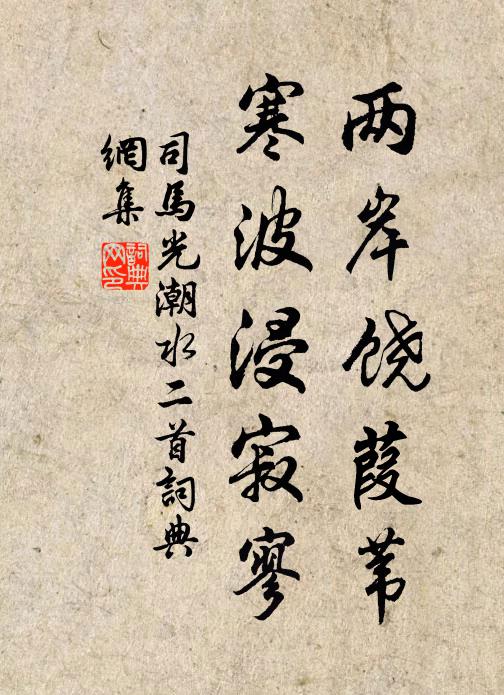 两岸饶葭苇
寒波浸寂寥
司馬光潮水二首詞典
網集
詞典
网印